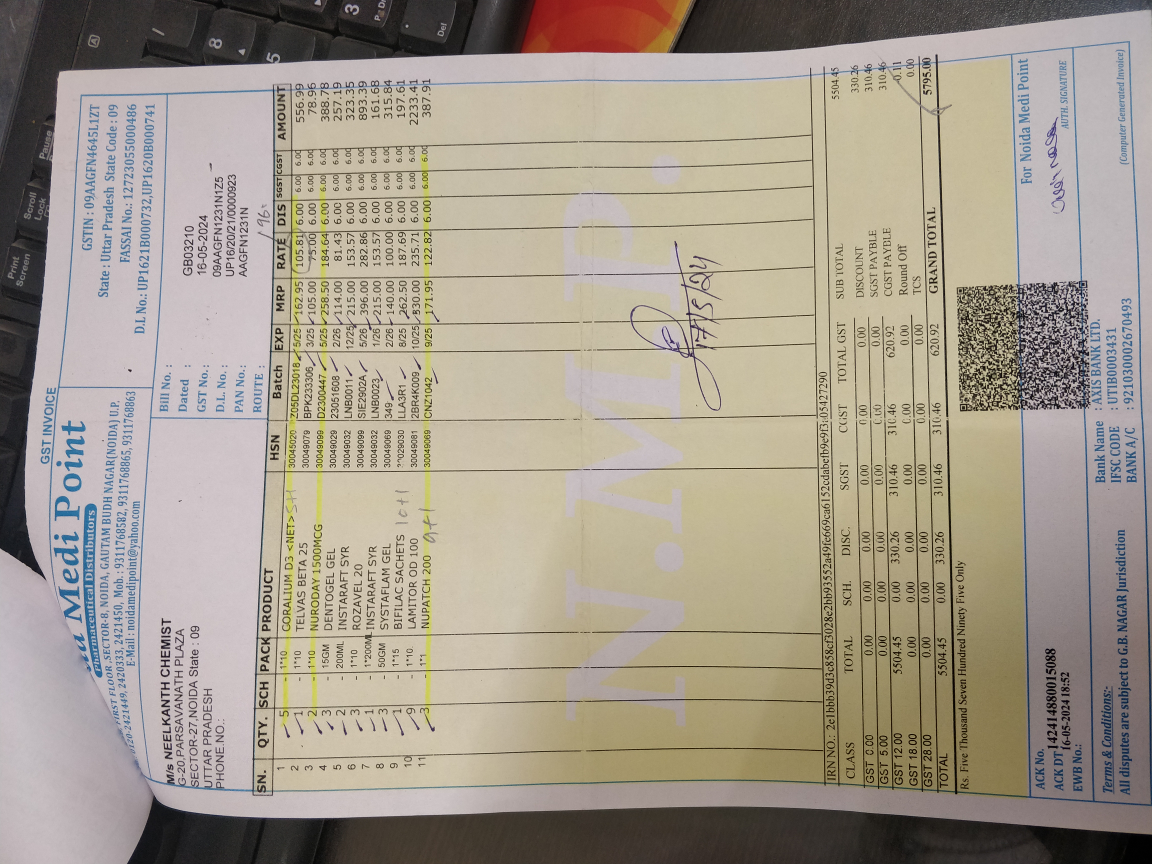 GST INVOICE
Medi Point
Pharmaceutical Distributors
FIRST FLOOR ,SECTOR-8, NOIDA, GAUTAM BUDH NAGAR(NOIDA) U.P.
0120-2421449, 2420333, 2421450, Mob. : 9311768582, 9311768865, 9311768863
E-Mail : noidamedipoint@yahoo.com
GSTIN : 09AAGFN4645L1ZT
State : Uttar Pradesh State Code : 09
FASSAI No.: 12723055000486
D.L No.: UP1621B000732,UP1620B000741
M/s NEELKANTH CHEMIST
G-20,PARSAVANATH PLAZA
SECTOR-27,NOIDA State : 09
UTTAR PRADESH
PHONE.NO.:
Bill No. : GB03210
Dated : 16-05-2024
GST No.: 09AAGFN1231N1Z5
D.L. No. : UP16/20/21/0000923
PAN No.: AAGFN1231N
ROUTE :
SN. QTY. SCH PACK PRODUCT HSN Batch EXP MRP RATE DIS SGST CGST AMOUNT
1 5 - 1*10 CORALIUM D3 <NET> 5+1 30045020 Z05DL23018 5/25 162.95 105.81 6.00 6.00 6.00 556.99
2 1 - 1*10 TELVAS BETA 25 30049079 BPK233306 3/25 105.00 75.00 6.00 6.00 6.00 78.96
3 2 - 1*10 NURODAY 1500MCG 30049099 D2300447 5/25 258.50 184.64 6.00 6.00 6.00 388.78
4 3 - 15GM DENTOGEL GEL 30049029 23051608 2/26 114.00 81.43 6.00 6.00 6.00 257.19
5 2 - 200ML INSTARAFT SYR 30049032 LNB0011 12/25 215.00 153.57 6.00 6.00 6.00 323.35
6 3 - 1*10 ROZAVEL 20 30049099 SIE2902A 5/26 396.00 282.86 6.00 6.00 6.00 893.39
7 1 - 1*200ML INSTARAFT SYR 30049032 LNB0023 1/26 215.00 153.57 6.00 6.00 6.00 161.68
8 3 - 50GM SYSTAFLAM GEL 30049069 349 2/26 140.00 100.00 6.00 6.00 6.00 315.84
9 1 - 1*15 BIFILAC SACHETS 10+1 LLA3R1 8/25 262.50 187.69 6.00 6.00 6.00 197.61
10 9 - 1*10 LAMITOR OD 100 30049081 2BR4K009 10/25 330.00 235.71 6.00 6.00 6.00 2233.41
11 3 - 1*1 NUPATCH 200 9+1 30049069 CNZ1042 9/25 171.95 122.82 6.00 6.00 6.00 387.91
N.M.P.
17/5/24
CLASS TOTAL SCH. DISC. SGST CGST TOTAL GST
GST 0.00 0.00 0.00 0.00 0.00 0.00 0.00
GST 5.00 0.00 0.00 0.00 0.00 0.00 0.00
GST 12.00 5504.45 0.00 330.26 310.46 310.46 620.92
GST 18.00 0.00 0.00 0.00 0.00 0.00 0.00
GST 28.00 0.00 0.00 0.00 0.00 0.00 0.00
TOTAL 5504.45 0.00 330.26 310.46 310.46 620.92
SUB TOTAL 5504.45
DISCOUNT 330.26
SGST PAYBLE 310.46
CGST PAYBLE 310.46
Round Off 0.11
TCS 0.00
GRAND TOTAL 5795.00
Rs. Five Thousand Seven Hundred Ninety Five Only
ACK No. 142414880015088
ACK DT 16-05-2024 18:52
EWB No.:
Terms & Conditions:-
All disputes are subject to G.B. NAGAR Jurisdiction
Bank Name : AXIS BANK LTD.
IFSC CODE : UTIB0003431
BANK A/C : 921030002670493
For Noida Medi Point
AUTH. SIGNATURE
(Computer Generated Invoice)
Print Screen
Scroll Lock
Pause
Del
8
5
3